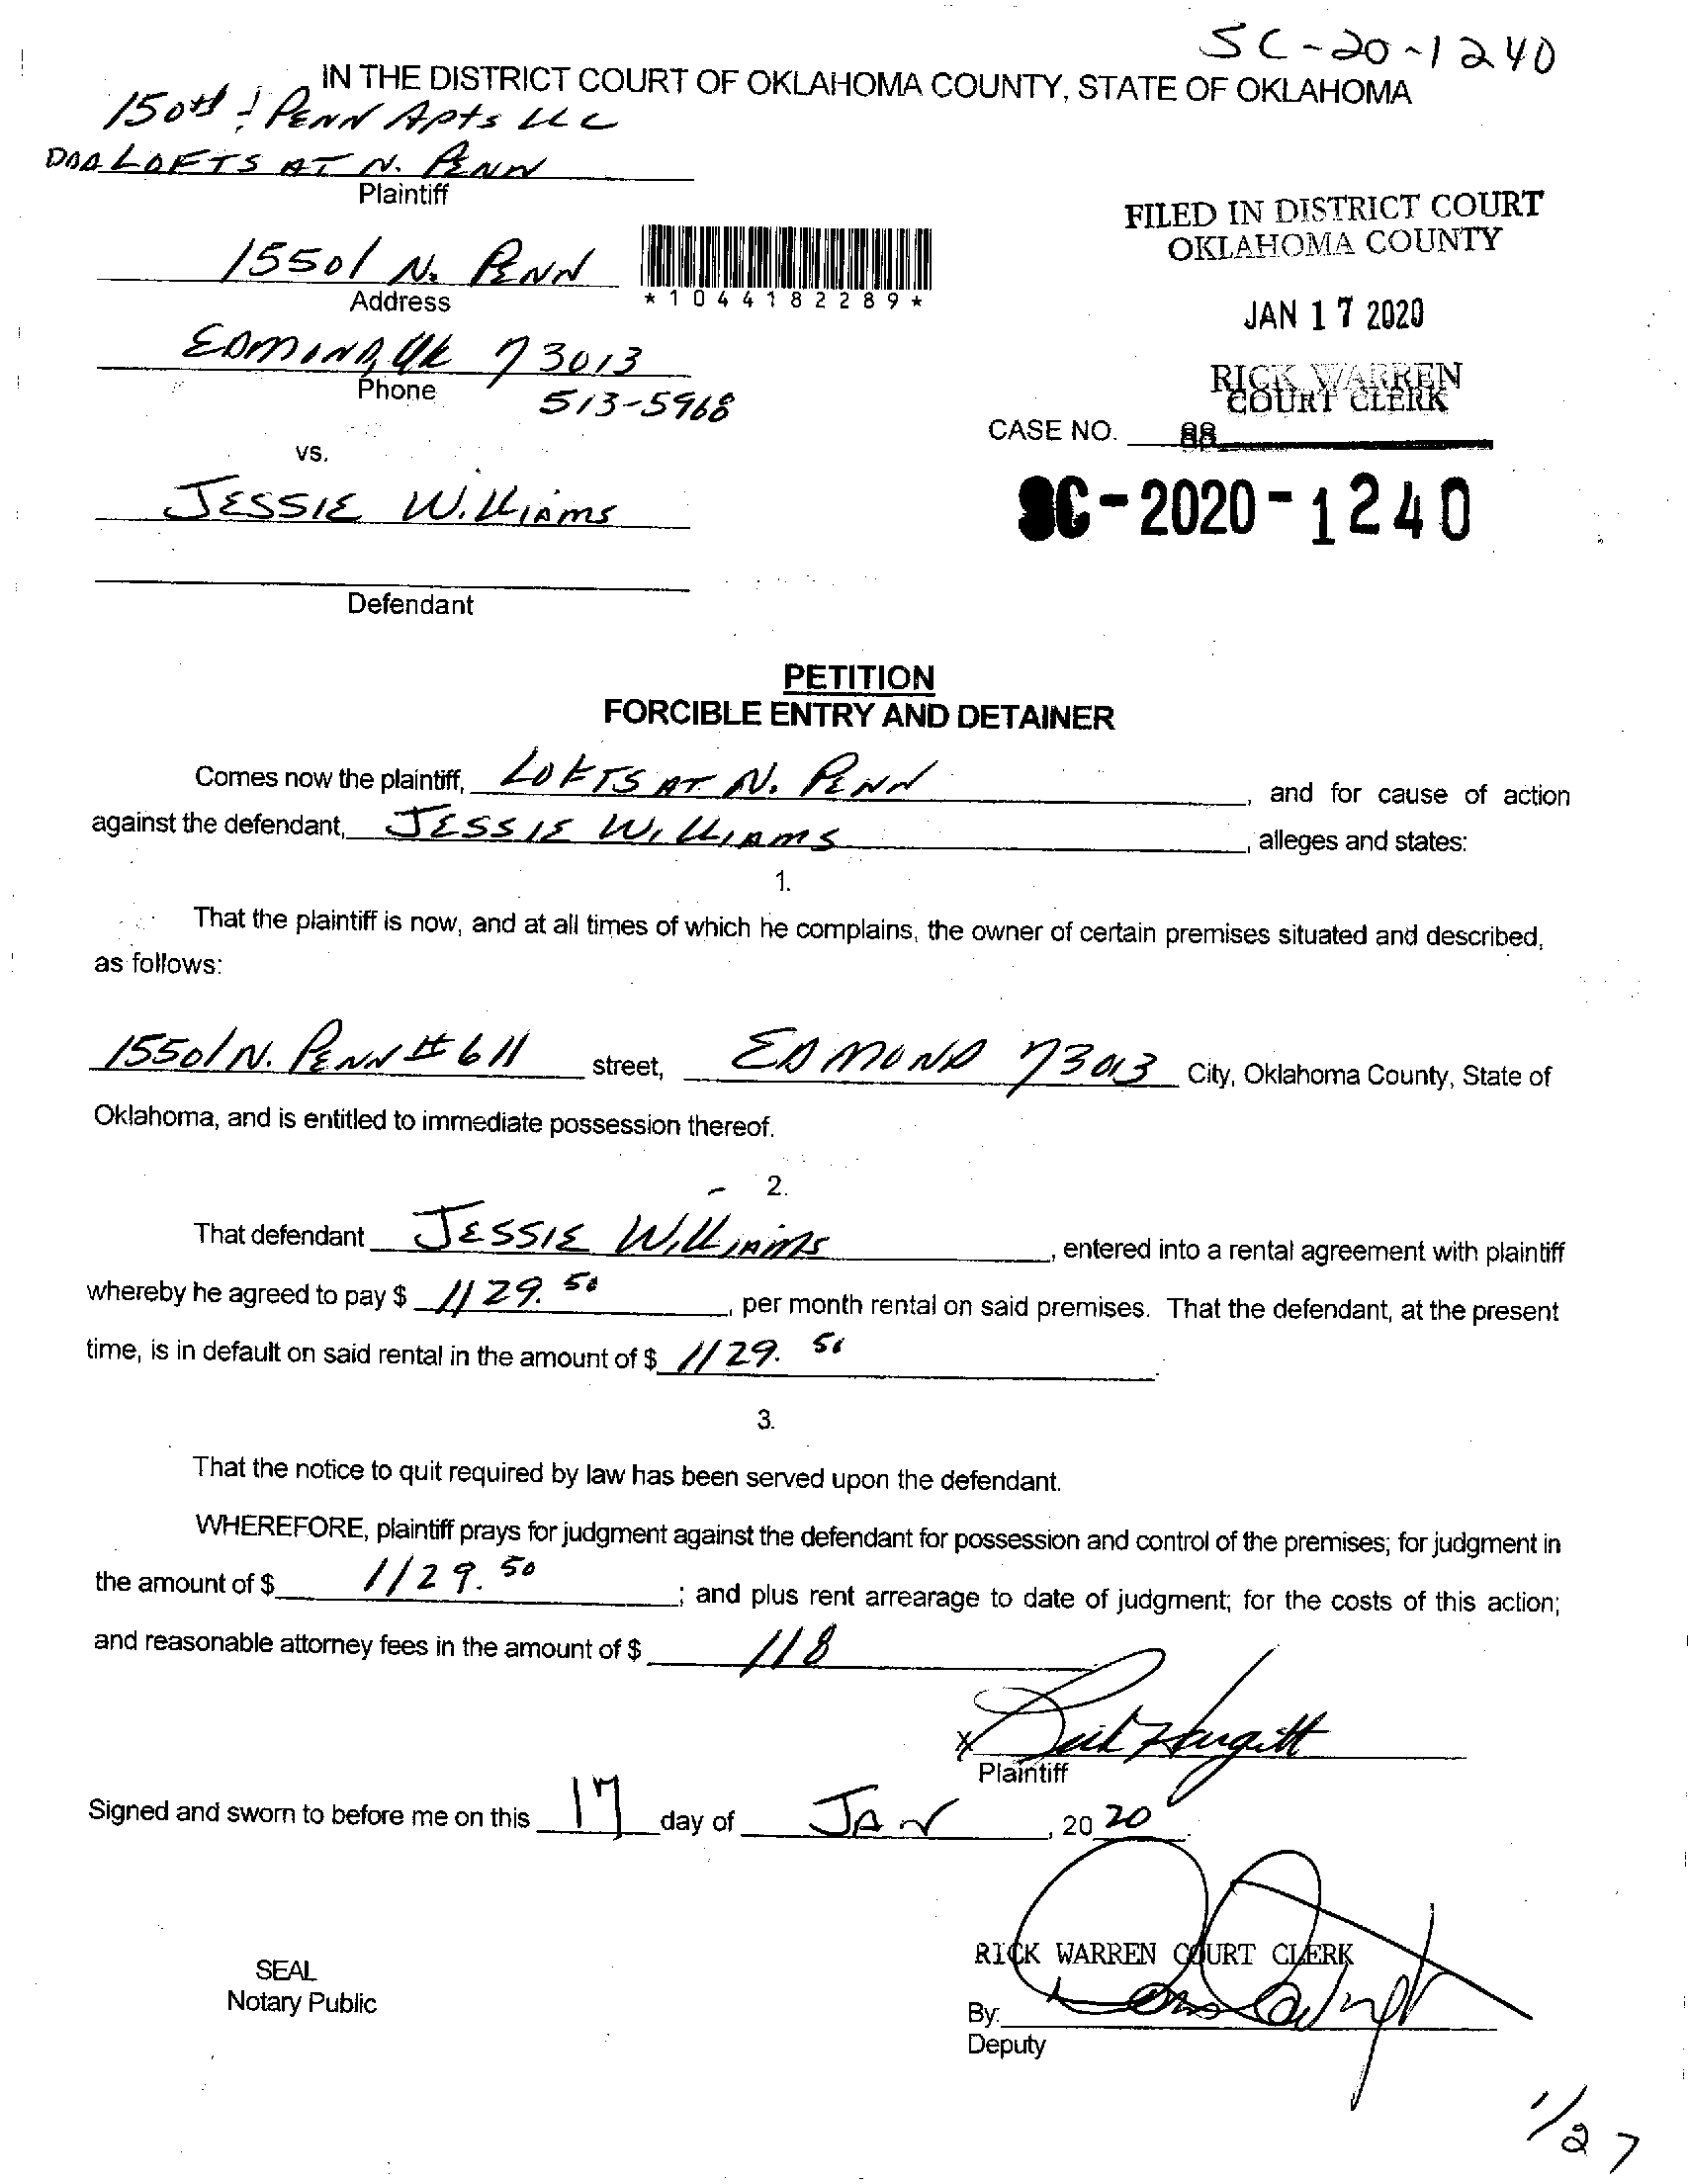 SC-20-1240
IN THE DISTRICT COURT OF OKLAHOMA COUNTY, STATE OF OKLAHOMA
150th & PENN Apts LLC
DBA LOFTS AT N. PENN
Plaintiff
FILED IN DISTRICT COURT
OKLAHOMA COUNTY
15501 N. PENN
Address
*1044182289*
JAN 17 2020
EDMOND, OK 73013
Phone
513-5968
RICK WARREN
COURT CLERK
CASE NO. 88
vs.
JESSIE WILLIAMS
SC-2020-1240
Defendant
PETITION
FORCIBLE ENTRY AND DETAINER
Comes now the plaintiff, LOFTS AT N. PENN, and for cause of action
against the defendant, JESSIE WILLIAMS, alleges and states:
1.
That the plaintiff is now, and at all times of which he complains, the owner of certain premises situated and described,
as follows:
15501 N. PENN #611 street, EDMOND 73013 City, Oklahoma County, State of
Oklahoma, and is entitled to immediate possession thereof.
2.
That defendant JESSIE WILLIAMS, entered into a rental agreement with plaintiff
whereby he agreed to pay $ 1129.50, per month rental on said premises. That the defendant, at the present
time, is in default on said rental in the amount of $ 1129.50.
3.
That the notice to quit required by law has been served upon the defendant.
WHEREFORE, plaintiff prays for judgment against the defendant for possession and control of the premises; for judgment in
the amount of $ 1129.50; and plus rent arrearage to date of judgment; for the costs of this action;
and reasonable attorney fees in the amount of $ 118
x
Plaintiff
Signed and sworn to before me on this 17 day of JAN, 2020.
RICK WARREN COURT CLERK
SEAL
Notary Public
By:
Deputy
1/27